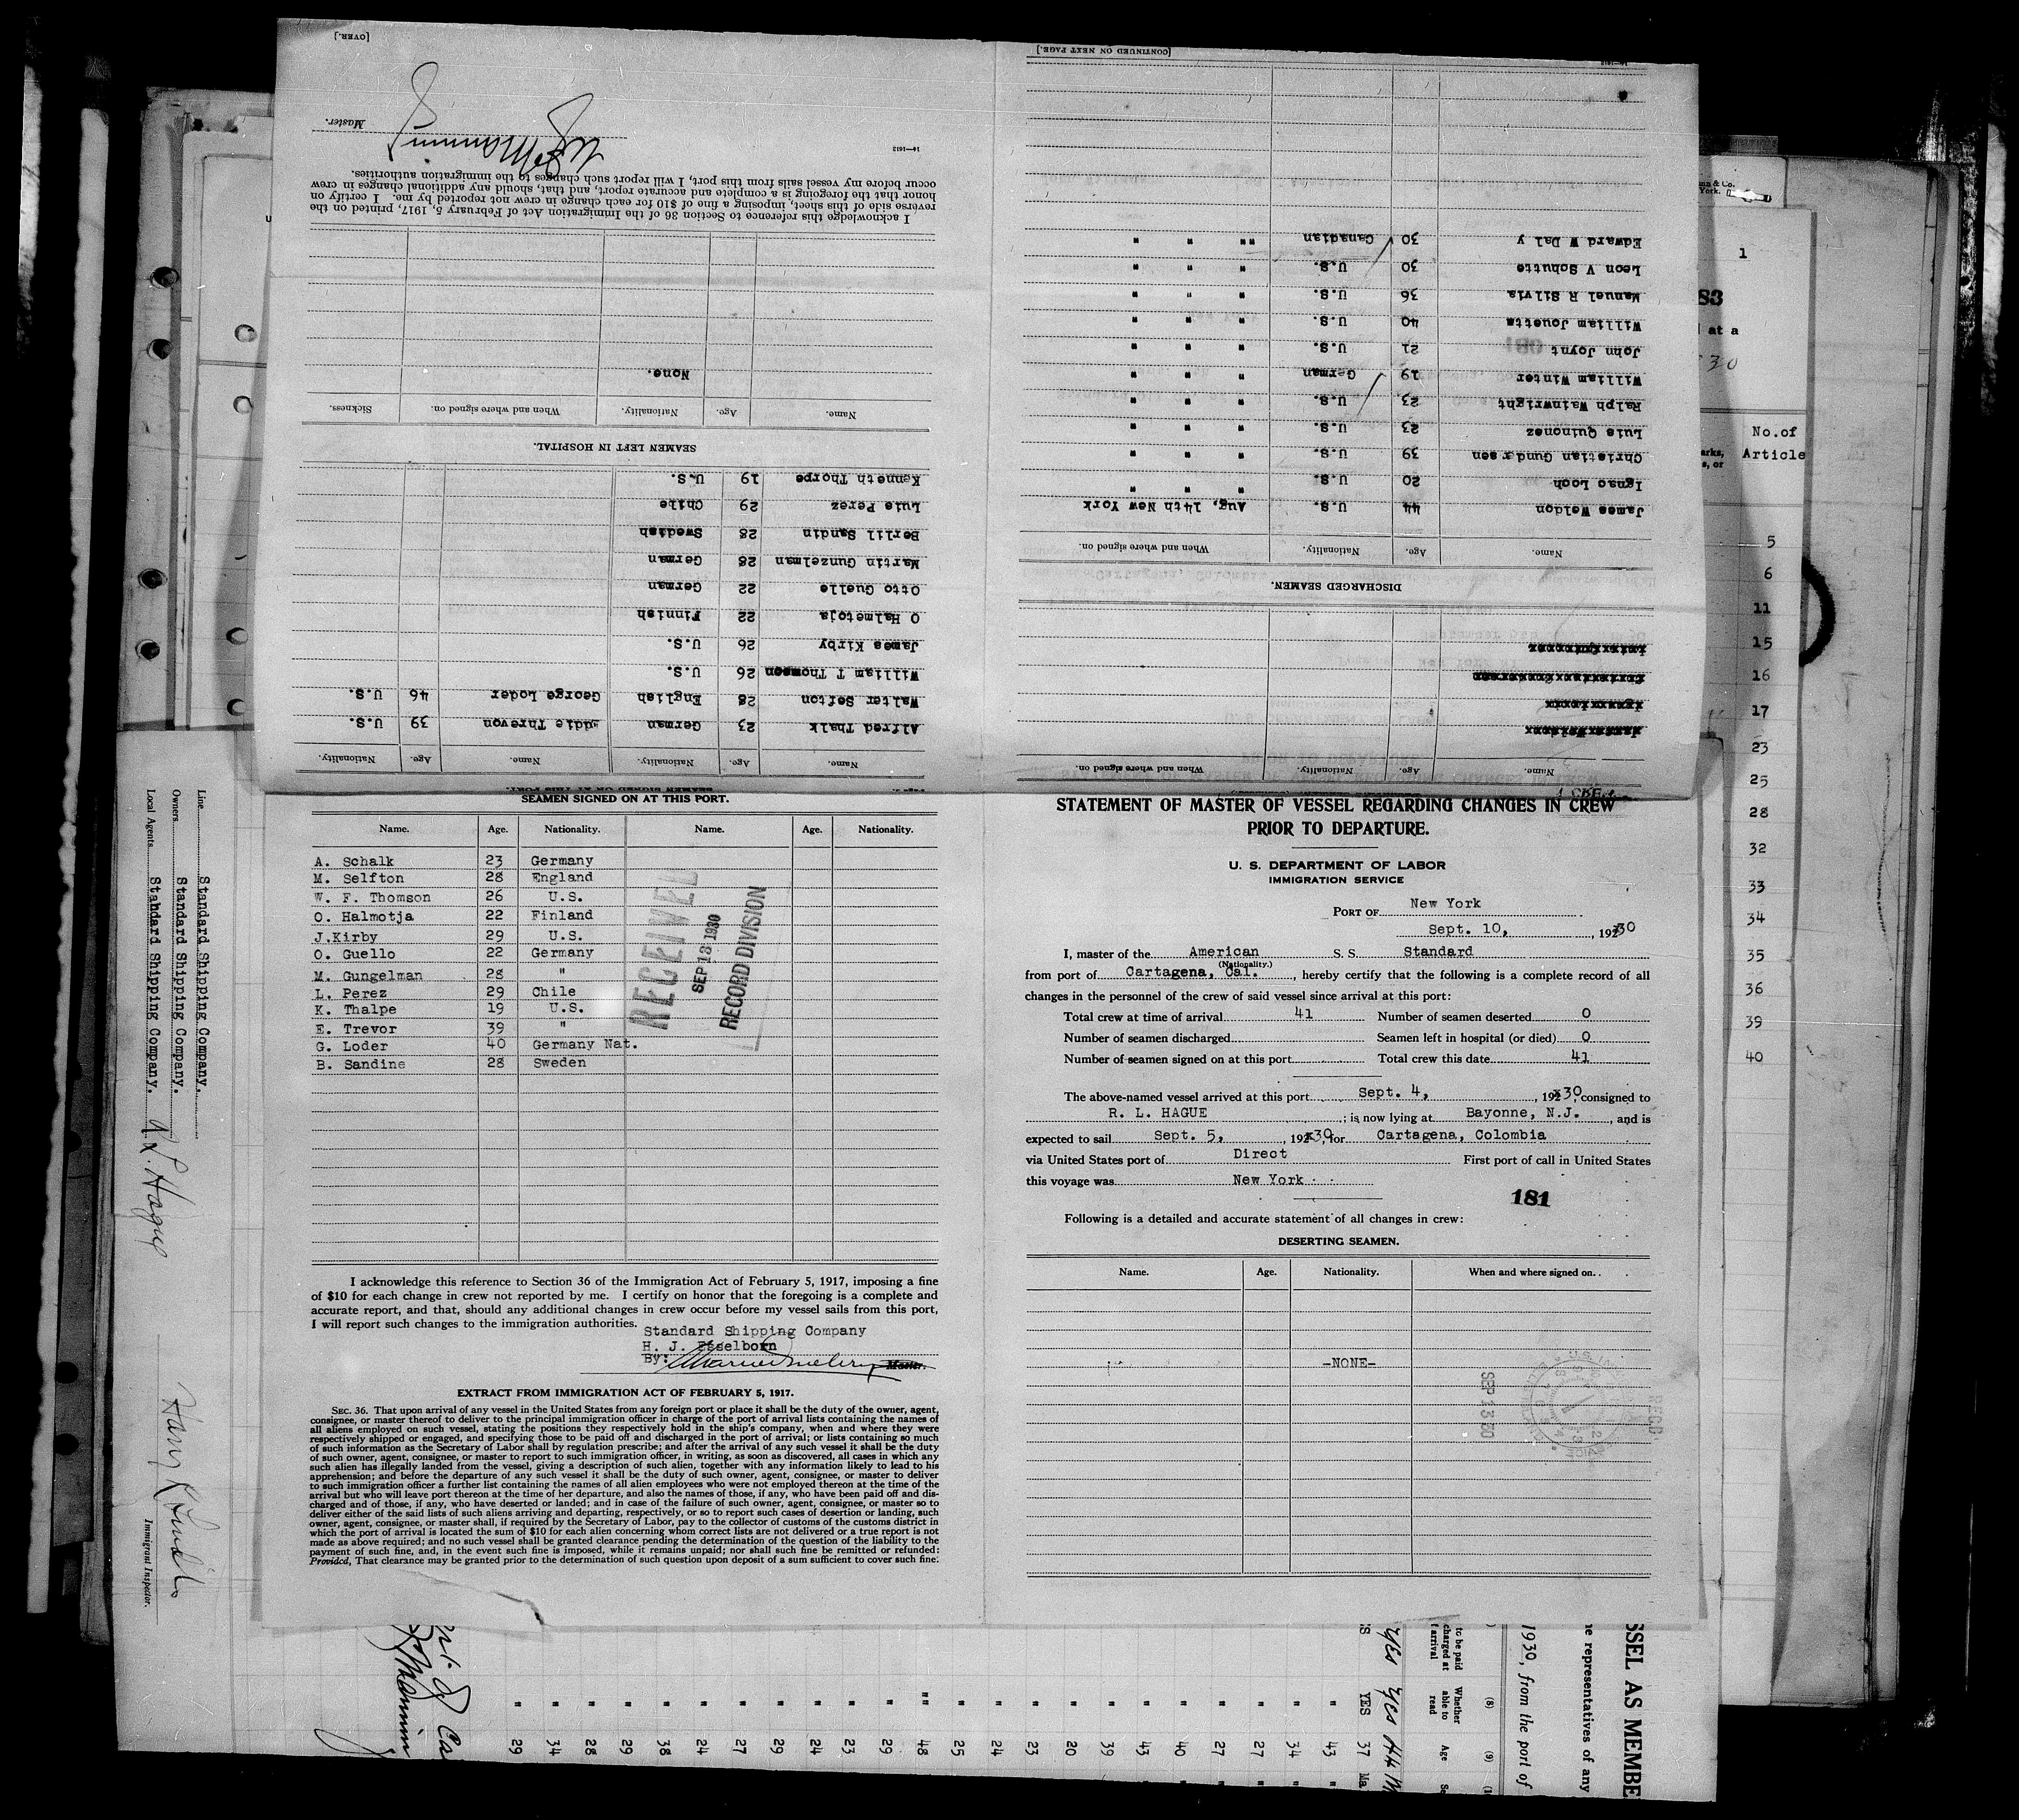 SEAMEN SIGNED ON AT THIS PORT.
Name. Age. Nationality. Name. Age. Nationality.
A. Schalk 23 Germany
M. Selfton 28 England
W. F. Thomson 26 U.S.
O. Halmotja 22 Finland
J.Kirby 29 U.S.
O. Guello 22 Germany
M. Gungelman 28 "
L. Perez 29 Chile
K. Thalpe 19 U.S.
E. Trevor 39 "
G. Loder 40 Germany Nat.
B. Sandine 28 Sweden
RECEIVED
SEP 13 1930
RECORD DIVISION
I acknowledge this reference to Section 36 of the Immigration Act of February 5, 1917, imposing a fine
of $10 for each change in crew not reported by me. I certify on honor that the foregoing is a complete and
accurate report, and that, should any additional changes in crew occur before my vessel sails from this port,
I will report such changes to the immigration authorities.
Standard Shipping Company
H. J. Esselborn
By:
Master.
EXTRACT FROM IMMIGRATION ACT OF FEBRUARY 5, 1917.
SEC. 36. That upon arrival of any vessel in the United States from any foreign port or place it shall be the duty of the owner, agent,
consignee, or master thereof to deliver to the principal immigration officer in charge of the port of arrival lists containing the names of
all aliens employed on such vessel, stating the positions they respectively hold in the ship's company, when and where they were
respectively shipped or engaged, and specifying those to be paid off and discharged in the port of arrival; or lists containing so much
of such information as the Secretary of Labor shall by regulation prescribe; and after the arrival of any such vessel it shall be the duty
of such owner, agent, consignee, or master to report to such immigration officer, in writing, as soon as discovered, all cases in which any
such alien has illegally landed from the vessel, giving a description of such alien, together with any information likely to lead to his
apprehension; and before the departure of any such vessel it shall be the duty of such owner, agent, consignee, or master to deliver
to such immigration officer a further list containing the names of all alien employees who were not employed thereon at the time of the
arrival but who will leave port thereon at the time of her departure, and also the names of those, if any, who have been paid off and dis-
charged and of those, if any, who have deserted or landed; and in case of the failure of such owner, agent, consignee, or master so to
deliver either of the said lists of such aliens arriving and departing, respectively, or so to report such cases of desertion or landing, such
owner, agent, consignee, or master shall, if required by the Secretary of Labor, pay to the collector of customs of the customs district in
which the port of arrival is located the sum of $10 for each alien concerning whom correct lists are not delivered or a true report is not
made as above required; and no such vessel shall be granted clearance pending the determination of the question of the liability to the
payment of such fine, and, in the event such fine is imposed, while it remains unpaid; nor shall such fine be remitted or refunded:
Provided, That clearance may be granted prior to the determination of such question upon deposit of a sum sufficient to cover such fine.
STATEMENT OF MASTER OF VESSEL REGARDING CHANGES IN CREW
PRIOR TO DEPARTURE.
U. S. DEPARTMENT OF LABOR
IMMIGRATION SERVICE
PORT OF New York
Sept. 10, , 19230
I, master of the American S. S. Standard
(Nationality.)
from port of Cartagena, Cal. , hereby certify that the following is a complete record of all
changes in the personnel of the crew of said vessel since arrival at this port:
Total crew at time of arrival 41 Number of seamen deserted 0
Number of seamen discharged Seamen left in hospital (or died) 0
Number of seamen signed on at this port Total crew this date 41
The above-named vessel arrived at this port Sept. 4, , 19230, consigned to
R. L. HAGUE ; is now lying at Bayonne, N.J. , and is
expected to sail Sept. 5, , 19230, for Cartagena, Colombia
via United States port of Direct First port of call in United States
this voyage was New York
181
Following is a detailed and accurate statement of all changes in crew:
DESERTING SEAMEN.
Name. Age. Nationality. When and where signed on.
-NONE-
SEP 13 30
REC'D
Name. Age. Nationality. Name. Age. Nationality.
Alfred Thalk 23 German Eudie Threvon 39 U.S.
Walter Sefton 28 English George Loder 46 U.S.
William T Thomson 26 U.S.
James Kirby 26 U.S.
O Halmetoja 22 Finnish
Otto Guelle 22 German
Martin Gunzelman 28 German
Berlil Sandin 28 Swedish
Luis Perez 29 Chile
Kenneth Thorpe 19 U.S.
SEAMEN LEFT IN HOSPITAL.
Name. Age. Nationality. When and where signed on. Sickness.
None.
I acknowledge this reference to Section 36 of the Immigration Act of February 5, 1917, printed on the
reverse side of this sheet, imposing a fine of $10 for each change in crew not reported by me. I certify on
honor that the foregoing is a complete and accurate report, and that, should any additional changes in crew
occur before my vessel sails from this port, I will report such changes to the immigration authorities.
14—1613
Master.
[OVER.]
Name. Age. Nationality. When and where signed on.
DISCHARGED SEAMEN.
Name. Age. Nationality. When and where signed on.
James Weldon 44 U.S. Aug, 14th New York
Ignac Loch 20 U.S. " " "
Christian Gundersen 39 U.S. " " "
Luis Quinonez 23 U.S. " " "
Ralph Wainwright 23. U.S. " " "
William Winter 19 German " " "
John Joynt 21 U.S. " " "
William Jouetta 40 U.S. " " "
Manuel R Silvia 36 U.S. " " "
Leon V Schutte 30 U.S. " " "
Edward W Daly 30 Canadian "" " "
[CONTINUED ON NEXT PAGE.]
Line Standard Shipping Company.
Owners Standard Shipping Company.
Local Agents Standard Shipping Company. R. L. Hague
Immigrant Inspector.
1
83
at a
30
No.of
Article
5
6
11
15
16
17
23
25
28
32
33
34
35
36
39
40
SSEL AS MEMBE
he representatives of any
1930, from the port of
(8) (9)
to be paid
charged at
f arrival
Whether
able to
read
Age
Yes Yes 44 M
YES 37 Ma
43
34
27
27
40
43
39
20
23
24
25
48
29
23
24
29
27
24
38
29
28
34
29